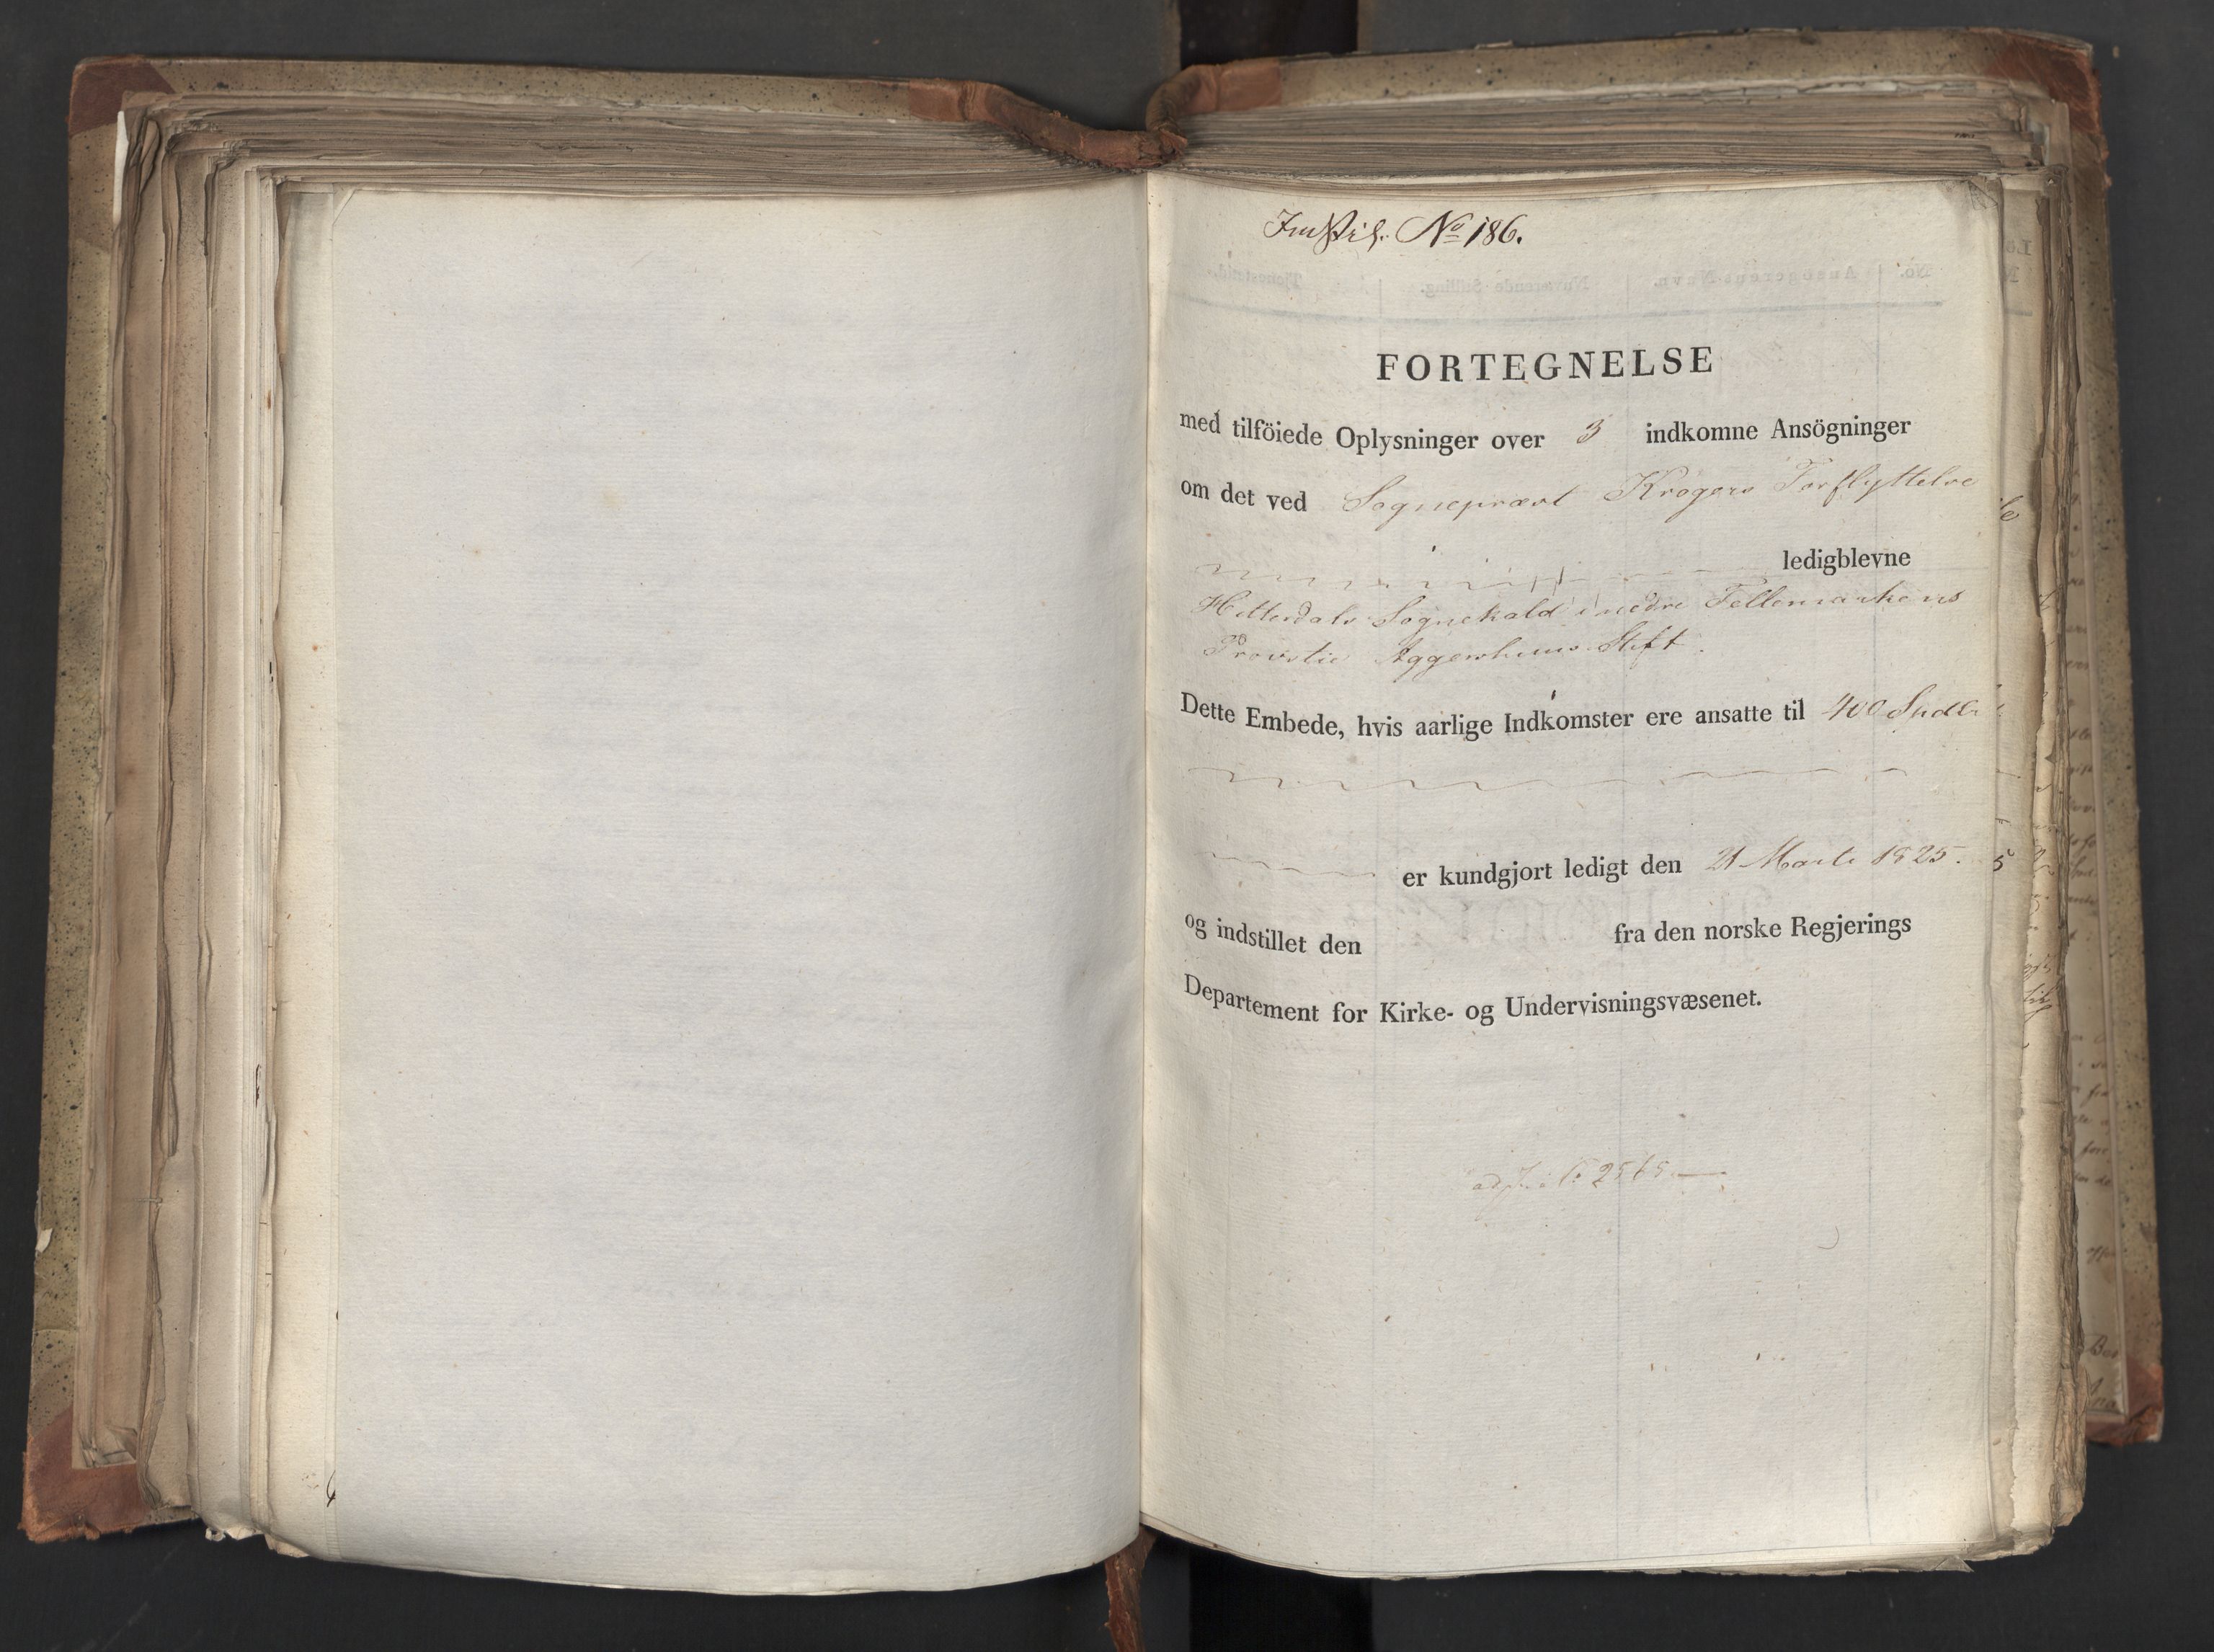 Indstil. No 186.
FORTEGNELSE
med tilföiede Oplysninger over 3 indkomne Ansögninger
om det ved Sognepræst Krogers Forflyttelse
ledigblevne
Hitterdals Sognekald i nedre Tellemarkens
Provstie Aggershuus Stift.
Dette Embede, hvis aarlige Indkomster ere ansatte til 400 Spdlr
er kundgjort ledigt den 21 Marts 1825.
og indstillet den fra den norske Regjerings
Departement for Kirke- og Undervisningsvæsenet.